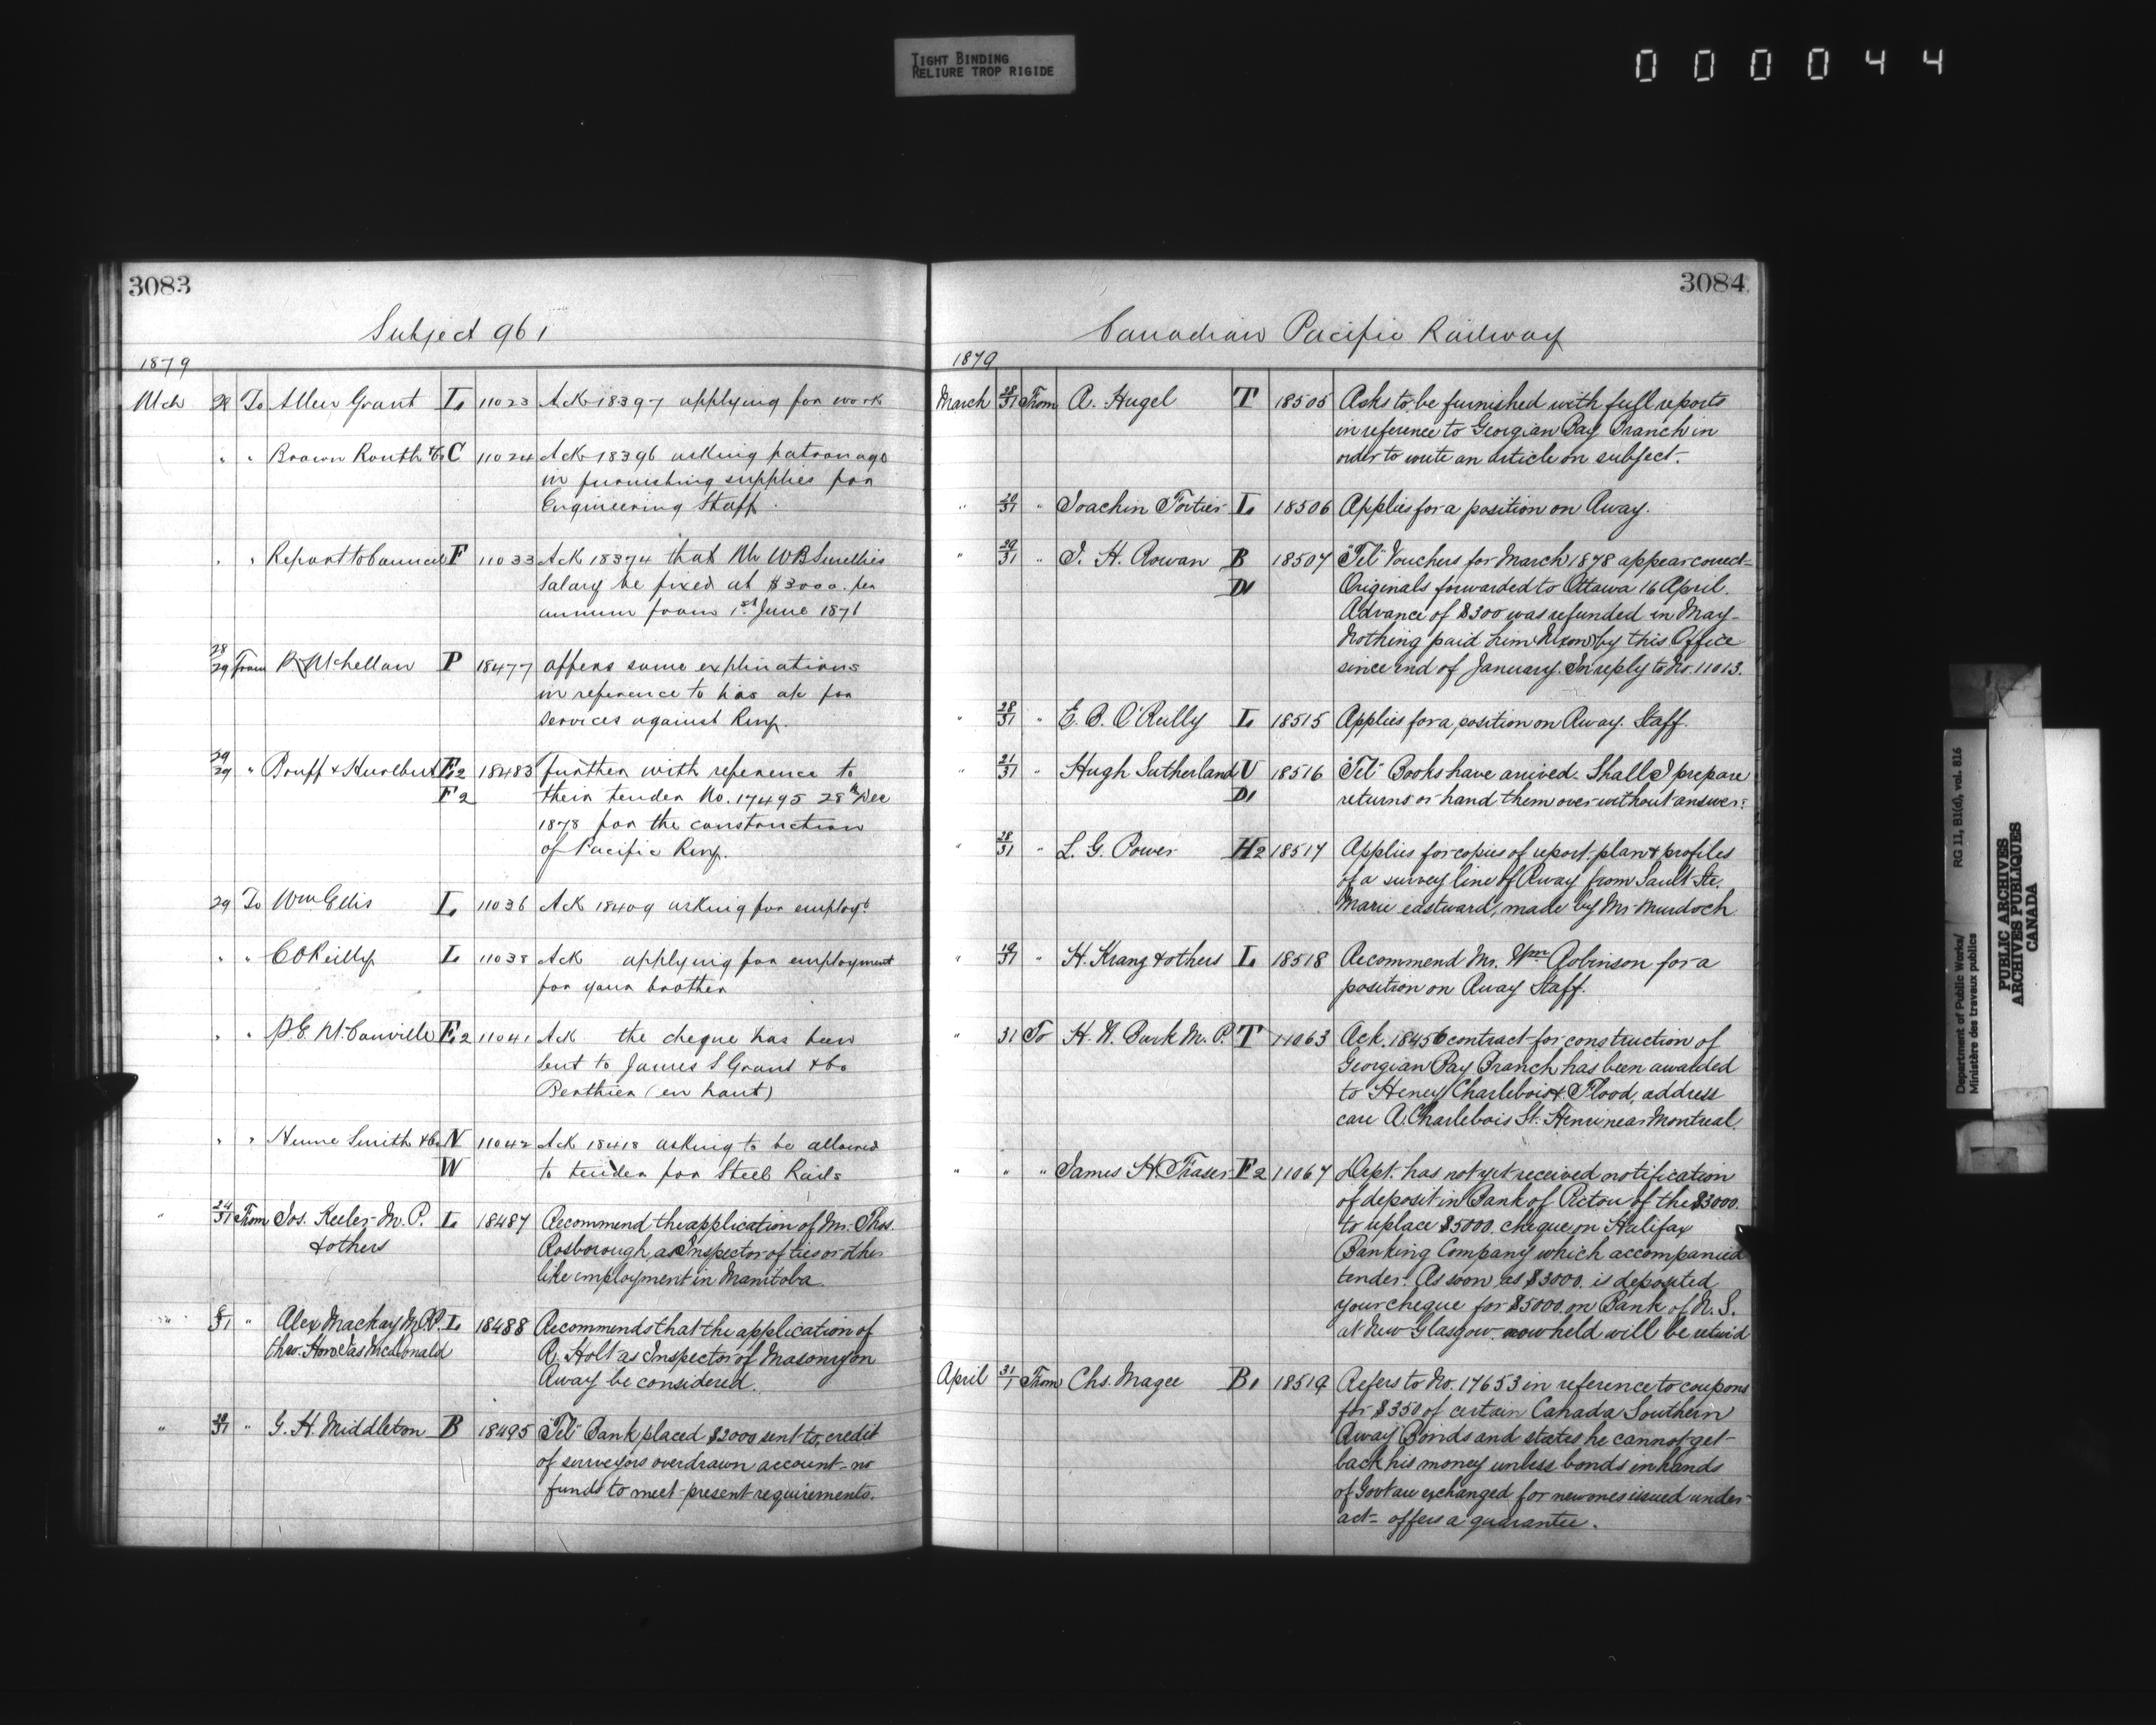 TIGHT BINDING
RELIURE TROP RIGIDE
000044
3083
Subject 961
1879
Mch 28 To Allen Grant L 11023 Ack 18397 applying for work
" " Brown Routh & Co C 11024 Ack 18396 asking patronage
in furnishing supplies for
Engineering Staff.
" " Report to Council F 11033 Ack 18374 that Mr W B Smellies
salary be fixed at $3000. per
annum from 1st June 1871
28/29 From P. McLellan P 18477 offers some explinations
in reference to his a/c for
services against Rwy.
29/29 " Bruff & Hurlburt E2 18483 further with reference to
F2 their tender No. 17495 28th Dec
1878 for the construction
of Pacific Rwy.
29 To Wm Ellis L 11036 Ack 18409 asking for employt
" " C O'Reilly L 11038 Ack applying for employment
for your brother
" " P. E. McConville E2 11041 Ack the cheque has been
sent to James S Grant & Co
Berthier (en haut)
" " Hume Smith & Co N 11042 Ack 18418 asking to be allowed
W to tender for Steel Rails
" 24/31 From Jos. Keeler M.P. L 18487 Recommend the application of Mr. Thos.
& others Rosborough, as Inspector of ties or other
like employment in Manitoba.
" 8/31 " Alex Mackay M.P. L 18488 Recommends that the application of
thro. Hon. Jas McDonald R. Holt as Inspector of Masonry on
Rway be considered.
" 28/31 " G. H. Middleton B 18495 "Tel" Bank placed $2000 sent to credit
of surveyors overdrawn account - no
funds to meet present requirements.
3084
Canadian Pacific Railway
1879
March 28/31 From A. Hugel T 18505 Asks to be furnished with full reports
in reference to Georgian Bay Branch in
order to write an article on subject.
" 20/31 " Joachin Fortier L 18506 Applies for a position on Rway.
" 29/31 " J. H. Rowan B 18507 "Tel" Vouchers for March 1878 appear correct -
D1 Originals forwarded to Ottawa 16 April.
Advance of $300 was refunded in May -
Nothing paid him (Nixon) by this Office
since end of January. In reply to No. 11013.
" 28/31 " E. B. O'Reilly L 18515 Applies for a position on Rway. Staff.
" 21/31 " Hugh Sutherland U 18516 "Tel" Books have arrived. Shall I prepare
D1 returns or hand them over without answer.
" 28/31 " L. G. Power H2 18517 Applies for copies of report, plan & profiles
of a survey line of Rway from Sault Ste.
Marie eastward, made by Mr. Murdoch
" 19/31 " H. Kranz & others L 18518 Recommend Mr. Wm Robinson for a
position on Rway Staff.
" 31 To H. N. Burk M.P. T 11063 Ack. 18456 contract for construction of
Georgian Bay Branch has been awarded
to Heney Charlebois & Flood, address
care A. Charlebois St. Henri near Montreal.
" " " James H. Fraser F2 11067 Dept. has not yet received notification
of deposit in Bank of Pictou of the $3000.
to replace $5000. cheque on Halifax
Banking Company which accompanied
tender. As soon as $3000. is deposited
your cheque for $5000. on Bank of N. S.
at New Glasgow now held will be retur'd
April 31/1 From Chs. Magee B1 18519 Refers to No. 17653 in reference to coupons
for $350 of certain Canada Southern
Rway Bonds and states he cannot get
back his money unless bonds in hands
of Govt are exchanged for new ones issued under
act - offers a guarantee.
Department of Public Works/
Ministère des travaux publics
RG 11, B1(d), vol. 816
PUBLIC ARCHIVES
ARCHIVES PUBLIQUES
CANADA